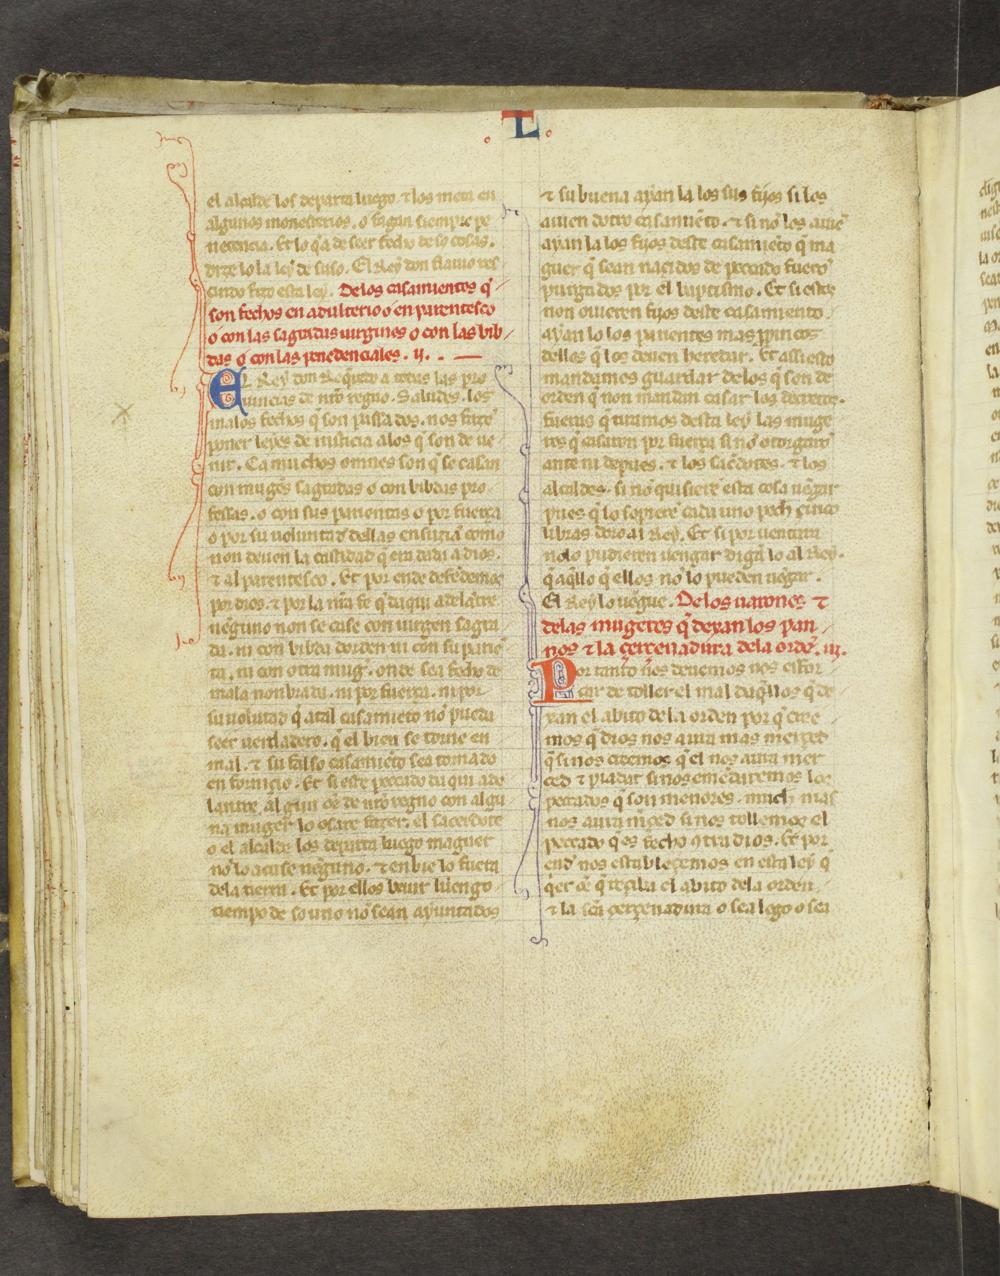 L
el alcalde los departa luego. ⁊ los meta en
algunos monesterios. o fagan siempre pe
nitencia. Et lo q̃ a de seer fecho de so cosas.
dize lo la ley de suso. El Rey don flauio res
cindo fizo esta ley. De los casamientos q̃
son fechos en adulterio o en parentesco
o con las sagradas uirgines o con las bib
das o con las penedenciales. ij.
El Rey don a totas las pro
uincias de nr̃o regno. Saludes. Los
malos fechos q̃ son passados. nos faze
poner leyes de iusticia alos q̃ son de ue
nir. Ca muchos omnes son q̃ se casan
con mug̃es sagradas o con bibdas pro
fessas. o con sus parientas o por fuerça
o por su voluntad dellas ensuzia como
non deuen la castidad q̃ era dada a dios.
⁊ al parentesco. Et por ende defẽdemos
por dios. ⁊ por la nr̃a fe q̃ daqui adelãtre
nẽguno non se case con uirgen sagra
da. ni con bibda dorden ni con su pariẽ
ta. ni con otra mug̃. onde sea fecho de
mala nonbrada. ni por fuerça. ni por
su volũtad q̃ atal casamiẽto nõ pueda
seer verdadero. q̃ el bien se torne en
mal. ⁊ su falso casamiẽto sea tornado
en fornicio. Et si este peccado daqui ade
lantre algun oẽ de nr̃o regno con algu
na muger lo osare fazer. el sacerdote
o el alcalde los departa luego maguer
nõ lo acuse nẽguno. ⁊ enbie lo fuera
dela tierra. Et por ellos beuir luengo
tiempo de so uno nõ sean ayuntados
⁊ su buena ayan la los sus fijos si los
auien dotro casamiẽto. ⁊ si nõ los auiẽ
ayan la los fijos deste casamiẽto q̃ ma
guer q̃ sean nacidos de peccado fuerõ
purgados por el baptismo. Et si estos
non ouieren fijos deste casamiento
ayan lo los parientes mas ꝓpincos
dellos q̃ los deuen heredar. Et assi esto
mandamos guardar de los q̃ son de
orden q̃ non mandan casar los decretos.
fueras q̃ tiramos desta ley las muge
res q̃ casaron por fuerça si nõ otorgarõ
ante ni depues. ⁊ los sac̃dotes. ⁊ los
alcaldes. si nõ quisierẽ esta cosa uẽgar
pues q̃ lo sopierẽ cada uno pech çinco
libras doro al Rey. Et si por uentura
nolo pudieren uengar digã lo al Rey.
q̃ aq̃llo q̃ ellos nõ lo pueden uẽgar.
El Rey lo uẽgue. De los uarones ⁊
delas mugeres q̃ dexan los pan
nos ⁊ la çerçenadura dela ordẽ. iij.
Por tanto nos deuemos nos esfor
çar de toller el mal daq̃llos q̃ de
xan el abito de la orden por q̃ cree
mos q̃ dios nos aura mas merçed
q̃ si nos creemos q̃ el nos aura mer
ced ⁊ piadat si nos emẽdaremos los
peccados q̃ son menores. much mas
nos aura m̃ced si nos tollemos el
peccado q̃ es fecho cõtra dios. Et por
end nos estableçemos en esta ley q̃
q̃er oẽ q̃ reçiba el abito dela orden
⁊ la sea çerçenadura o sea lego o sea